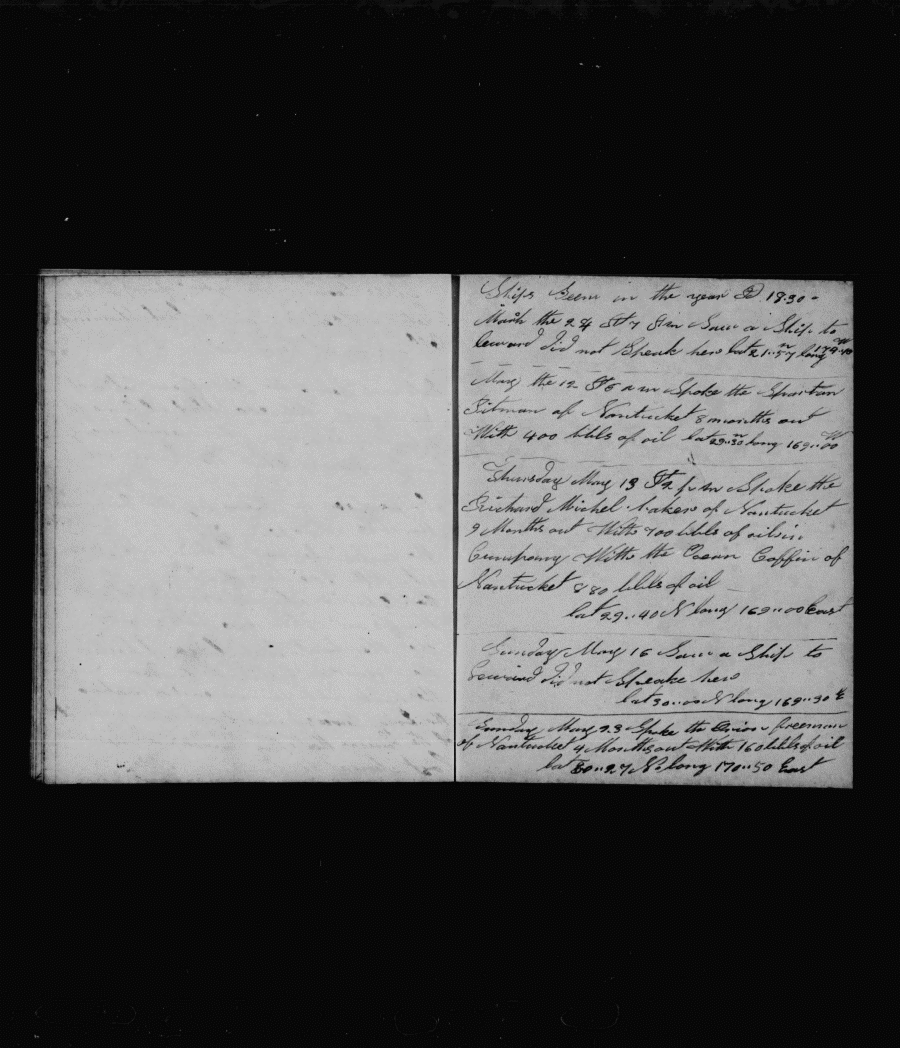 Ships Seen in the year D 1830 -
March the 24 At 7 Am Saw a Ship to
leward did not Speak her lat 21..57 n long 179..40 W
May the 12 At 6 am Spoke the Spartan
Pitman of Nantucket 8 months out
With 400 bbls of oil lat 29..30 n long 169..00 W
Thursday May 13 At 2 pm Spoke the
Richard Michel baker of Nantucket
9 Months out With 700 bbls of oil in
Cumpany With the Ocean Coffin of
Nantucket 880 bbls of oil
lat 29..40 N long 169..00 East
Sunday May 16 Saw a Ship to
Leward did not Speake her
lat 30..00 N long 169..30 E
Sunday May 23 Spoke the Orion freeman
of Nantucket 4 Months out With 160 bbls of oil
lat 30..27 N long 170..50 East